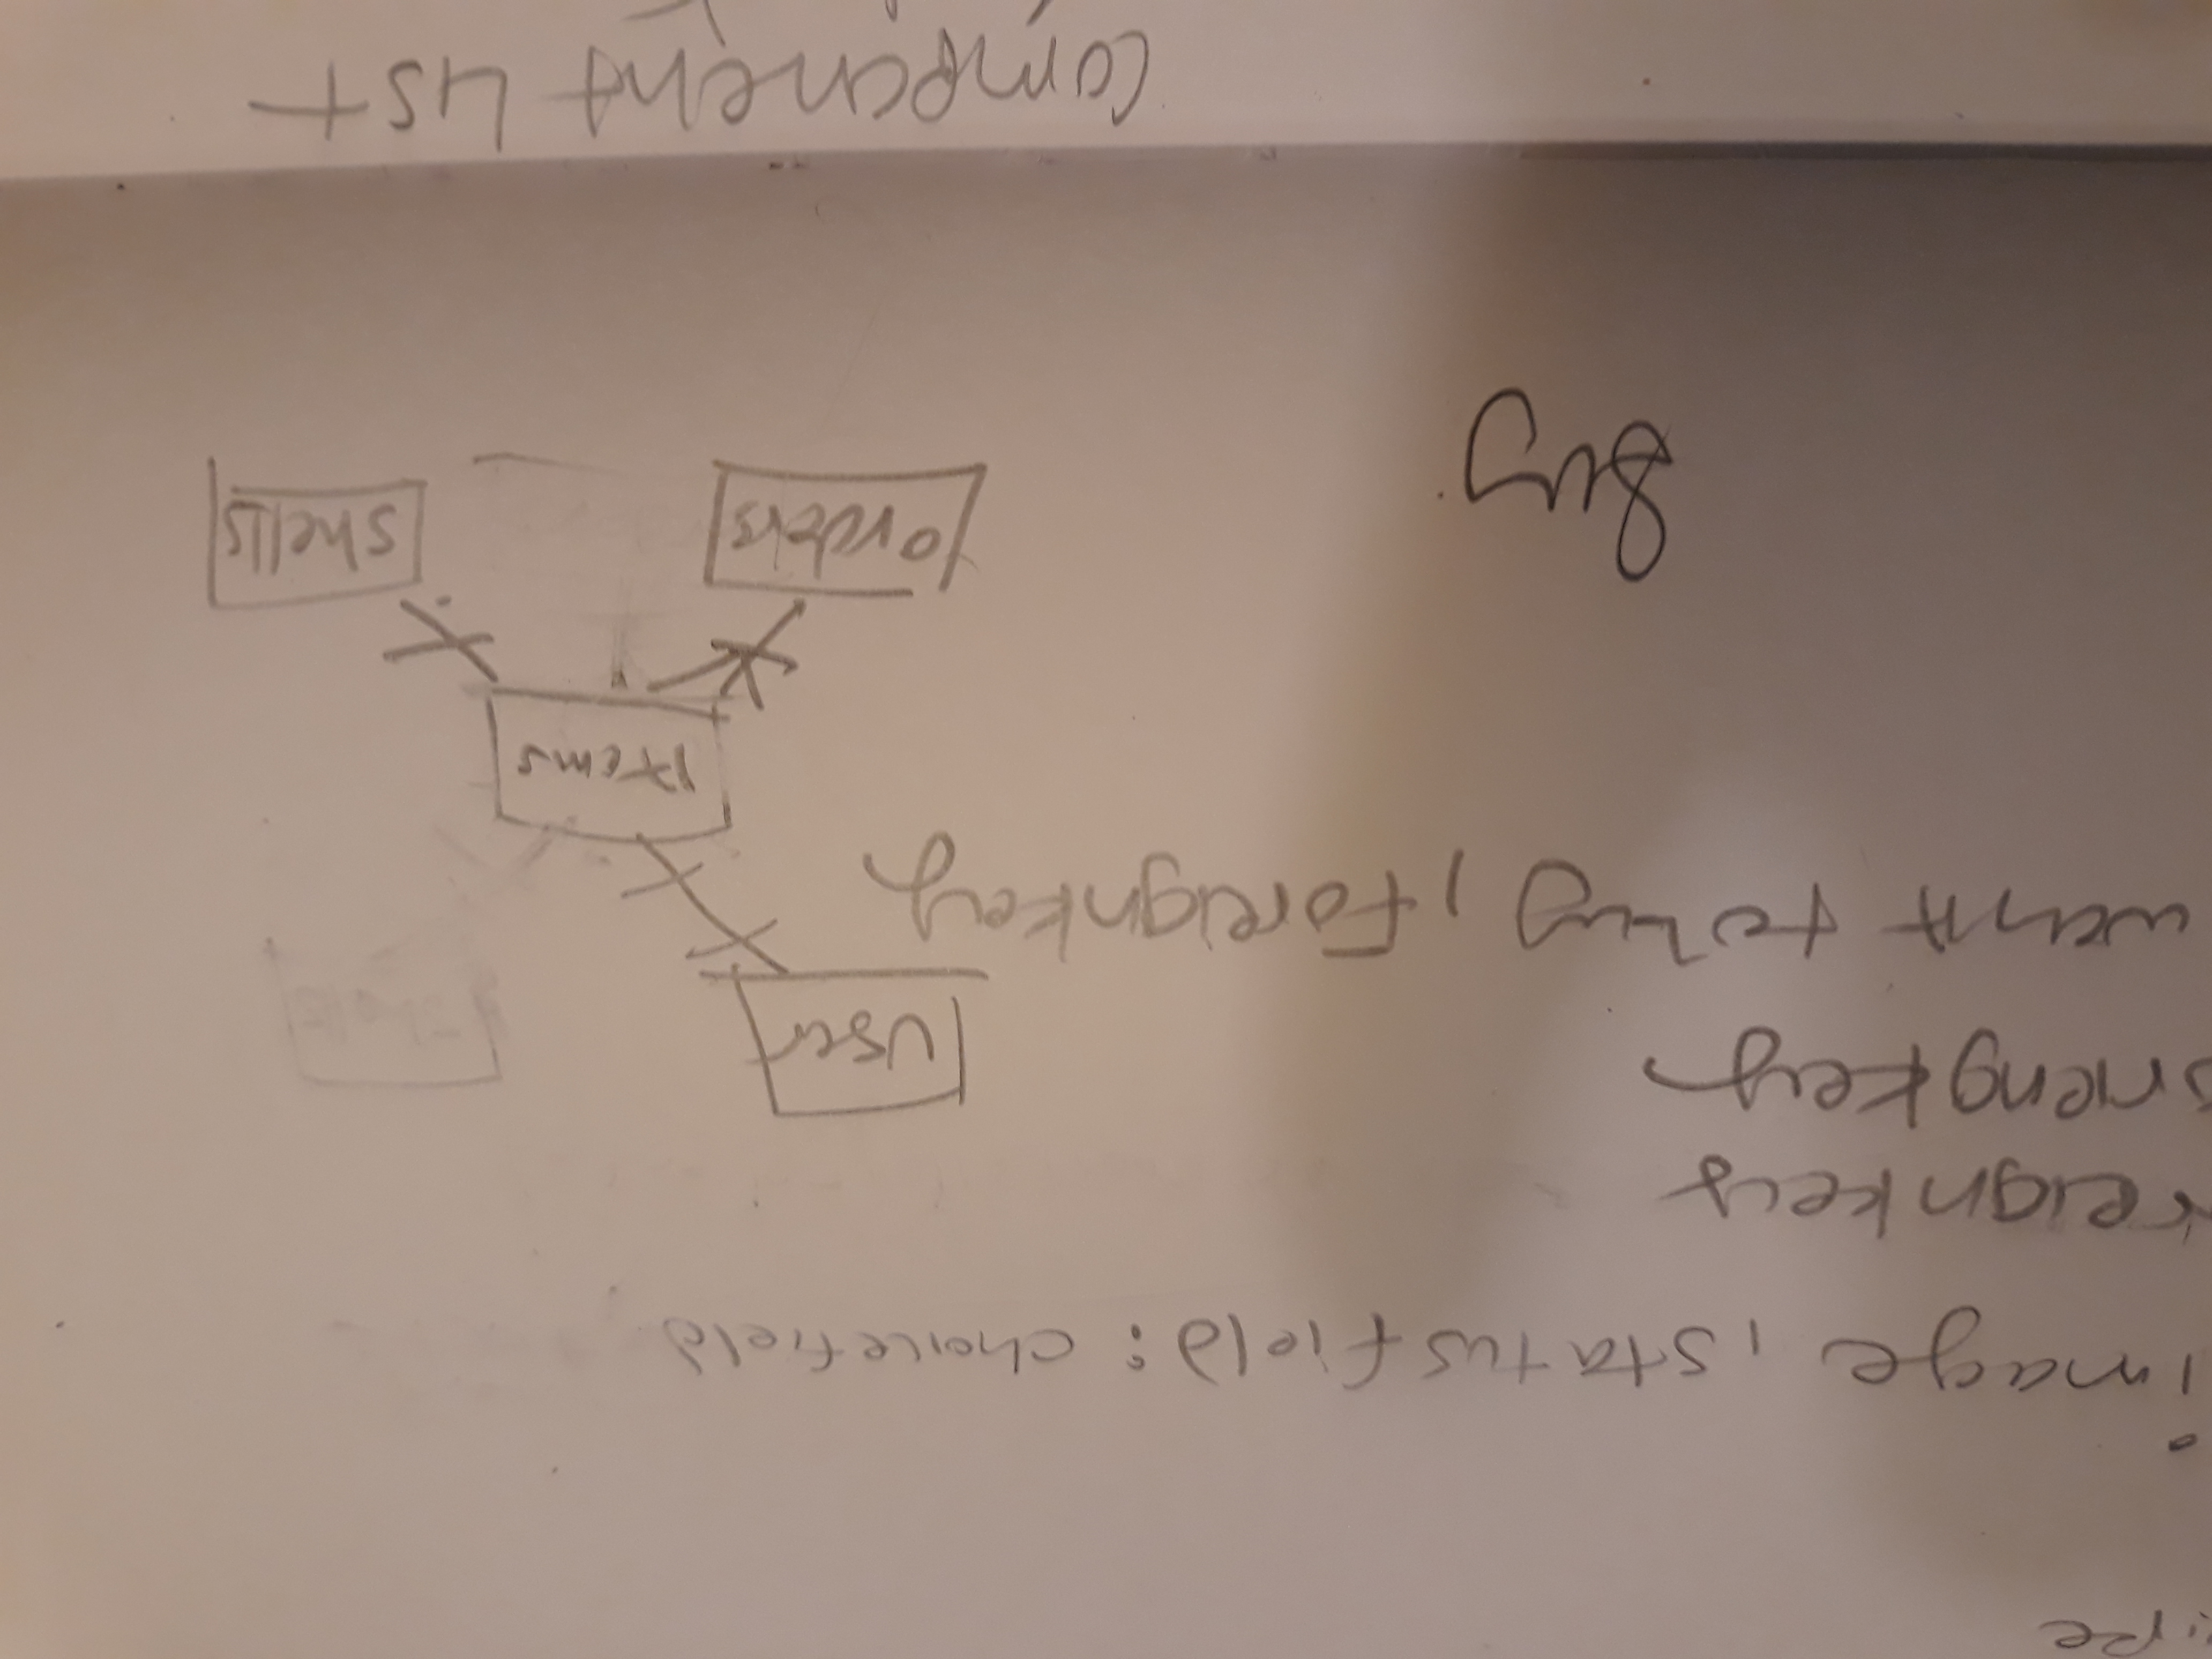 image, statusfield: choicefield
reignkey
oriengkey
User
want to buy, Foreignkey
items
orders
shells
Component List